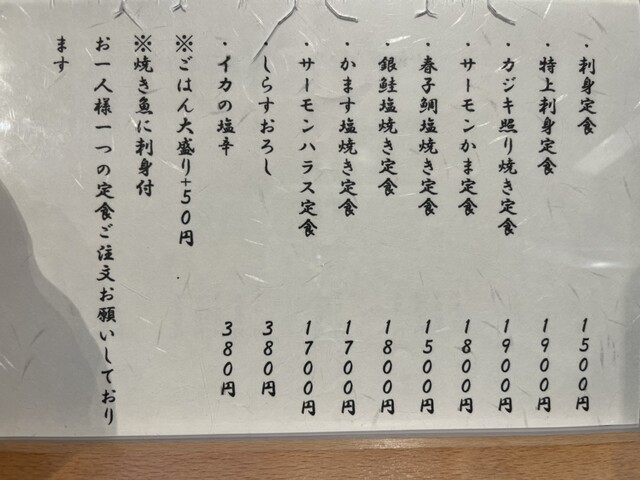 ・刺身定食 1500円
・特上刺身定食 1900円
・カジキ照り焼き定食 1900円
・サーモンかま定食 1800円
・春子鯛塩焼き定食 1500円
・銀鮭塩焼き定食 1800円
・かます塩焼き定食 1700円
・サーモンハラス定食 1700円
・しらすおろし 380円
・イカの塩辛 380円
※ごはん大盛り+50円
※焼き魚に刺身付
お一人様一つの定食ご注文お願いしており
ます